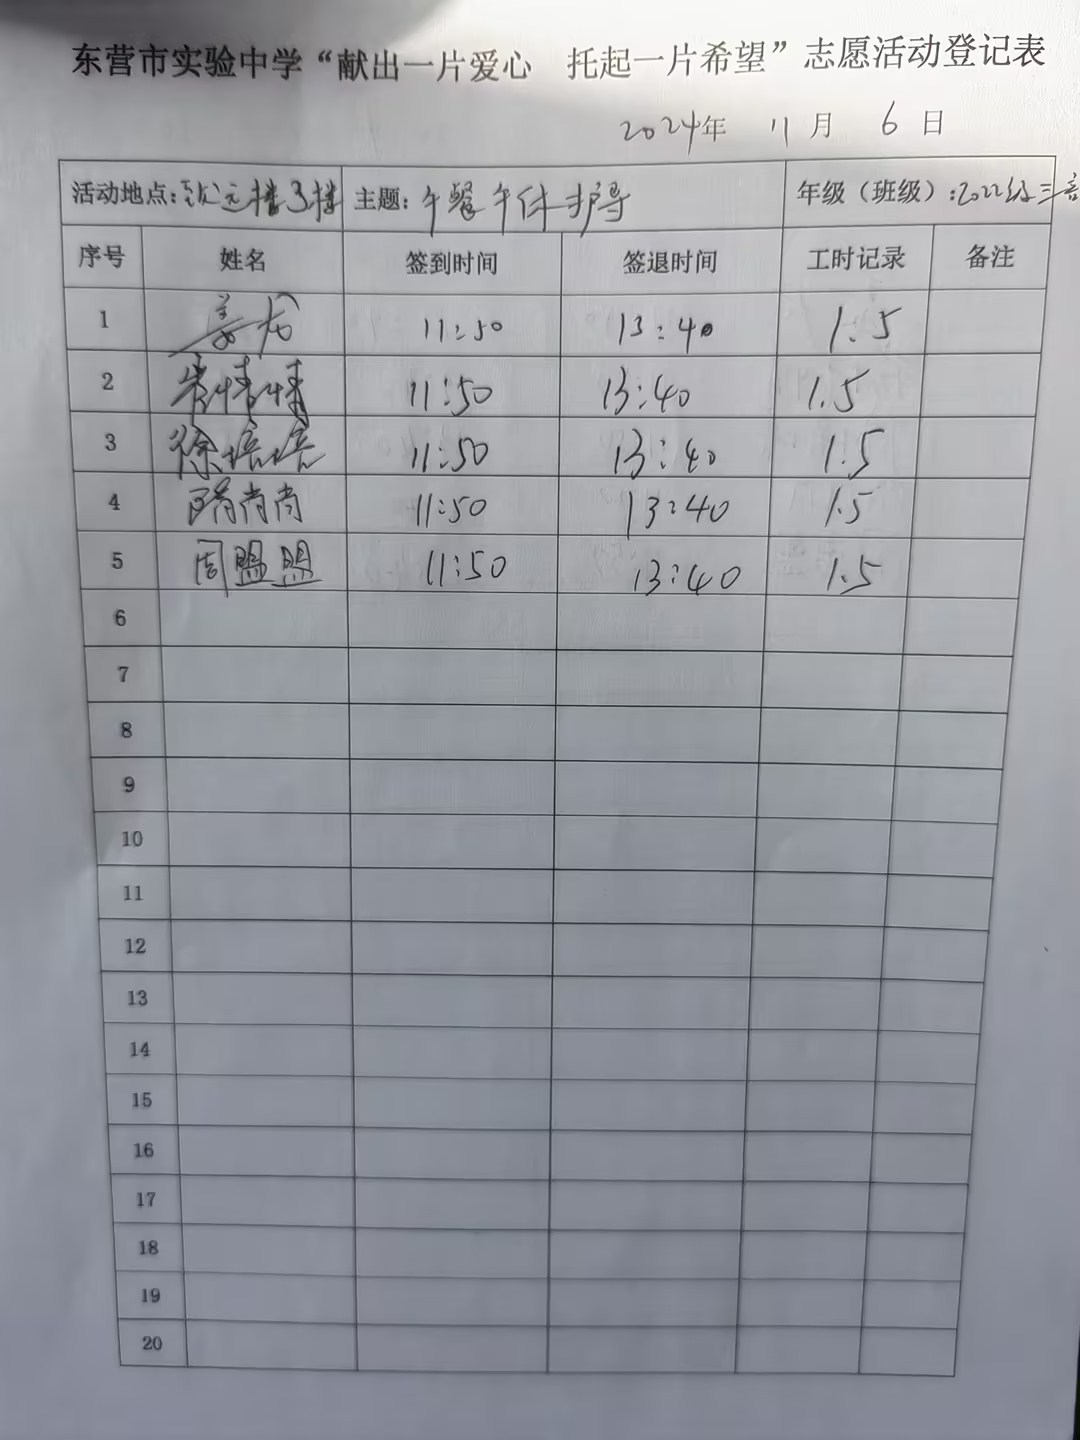 东营市实验中学“献出一片爱心 托起一片希望”志愿活动登记表
2024年 11月 6日
活动地点:致远楼3楼 主题:午餐午休护导 年级（班级）:2022级三
序号 姓名 签到时间 签退时间 工时记录 备注
1 姜龙 11:50 13:40 1.5
2 朱倩倩 11:50 13:40 1.5
3 徐培培 11:50 13:40 1.5
4 隋尚尚 11:50 13:40 1.5
5 周盟盟 11:50 13:40 1.5
6
7
8
9
10
11
12
13
14
15
16
17
18
19
20